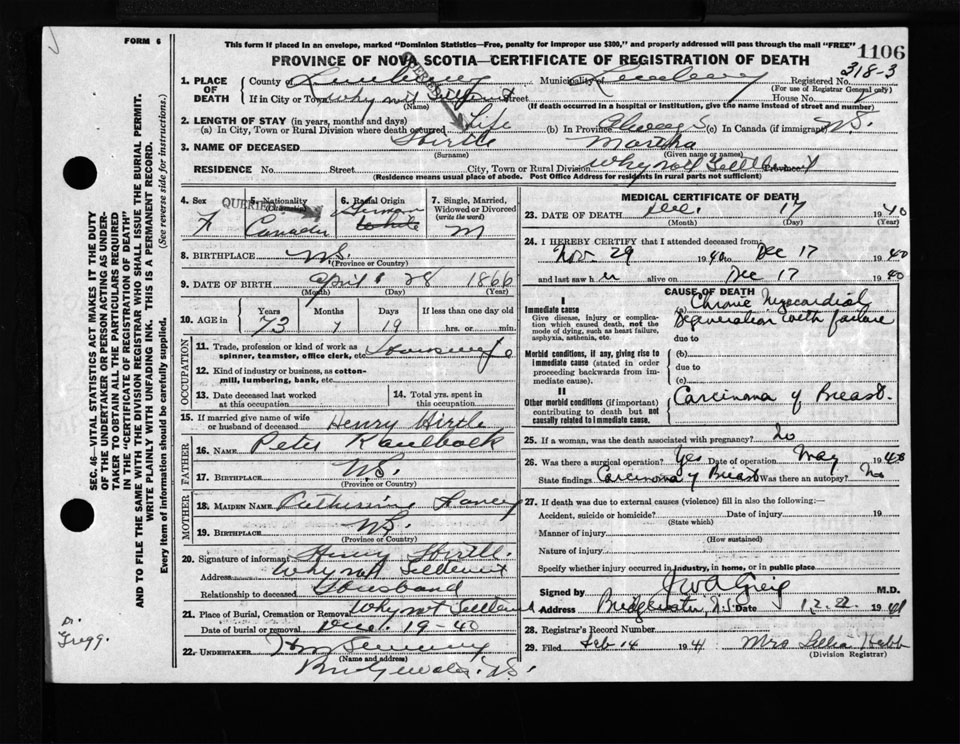 FORM 6
This form if placed in an envelope, marked "Dominion Statistics—Free, penalty for improper use $300," and properly addressed will pass through the mail "FREE"
1106
PROVINCE OF NOVA SCOTIA—CERTIFICATE OF REGISTRATION OF DEATH
318-3
1. PLACE OF DEATH
County of Lunenburg Municipality of Registered No.
(For use of Registrar General only)
If in City or Town Why not Street House No.
(Name) (If death occurred in a hospital or institution, give the name instead of street and number)
2. LENGTH OF STAY (in years, months and days)
(a) In City, Town or Rural Division where death occurred Life (b) In Province Always (c) In Canada (if immigrant) N.S.
3. NAME OF DECEASED Hirtle Martha
(Surname) (Given name or names)
RESIDENCE No. Street City, Town or Rural Division Why not Settlement Province
(Residence means usual place of abode. Post Office Address for residents in rural parts not sufficient)
4. Sex F
QUERIED
5. Nationality (Citizenship) Canadian
6. Racial Origin German White
7. Single, Married, Widowed or Divorced (write the word) M
8. BIRTHPLACE N.S.
(Province or Country)
9. DATE OF BIRTH April 28 1866
(Month) (Day) (Year)
10. AGE in Years Months Days If less than one day old
73 7 19 hrs. or min.
OCCUPATION
11. Trade, profession or kind of work as spinner, teamster, office clerk, etc. Housewife
12. Kind of industry or business, as cotton-mill, lumbering, bank, etc.
13. Date deceased last worked at this occupation
14. Total yrs. spent in this occupation
15. If married give name of wife or husband of deceased Henry Hirtle
FATHER
16. NAME Peter Kaulback
17. BIRTHPLACE N.S.
(Province or Country)
MOTHER
18. MAIDEN NAME
19. BIRTHPLACE N.S.
(Province or Country)
20. Signature of informant Henry Hirtle
Address Why not Settlement
Relationship to deceased Husband
21. Place of Burial, Cremation or Removal Why not Settlement
Date of burial or removal Dec. 19-40
22. UNDERTAKER
(Name and address)
Bridgewater, N.S.
MEDICAL CERTIFICATE OF DEATH
23. DATE OF DEATH Dec. 17 1940
(Month) (Day) (Year)
24. I HEREBY CERTIFY that I attended deceased from:
Nov. 29 1940 to Dec 17 1940
and last saw h er alive on Dec 17 1940
CAUSE OF DEATH
I
Immediate cause
Give disease, injury or complication which caused death, not the mode of dying, such as heart failure, asphyxia, asthenia, etc.
(a) Chronic Myocardial
Degeneration with failure
due to
Morbid conditions, if any, giving rise to immediate cause (stated in order proceeding backwards from immediate cause).
(b)
due to
(c)
II
Other morbid conditions (if important) contributing to death but not causally related to immediate cause.
Carcinoma of Breast.
25. If a woman, was the death associated with pregnancy? No
26. Was there a surgical operation? Yes Date of operation May 1940
State findings Carcinoma of Breast Was there an autopsy? No
27. If death was due to external causes (violence) fill in also the following:—
Accident, suicide or homicide? Date of injury 19
(State which)
Manner of injury
(How sustained)
Nature of injury
Specify whether injury occurred in industry, in home, or in public place
Signed by J W A Greig M.D.
Address Bridgewater, N.S. Date 1941
28. Registrar's Record Number
29. Filed Feb 14 1941 Mrs Hebb
(Division Registrar)
SEC. 46—VITAL STATISTICS ACT MAKES IT THE DUTY
OF THE UNDERTAKER OR PERSON ACTING AS UNDER-
TAKER TO OBTAIN ALL THE PARTICULARS REQUIRED
IN THE "CERTIFICATE OF REGISTRATION OF DEATH"
AND TO FILE THE SAME WITH THE DIVISION REGISTRAR WHO SHALL ISSUE THE BURIAL PERMIT.
WRITE PLAINLY WITH UNFADING INK. THIS IS A PERMANENT RECORD.
Every item of information should be carefully supplied. (See reverse side for instructions.)